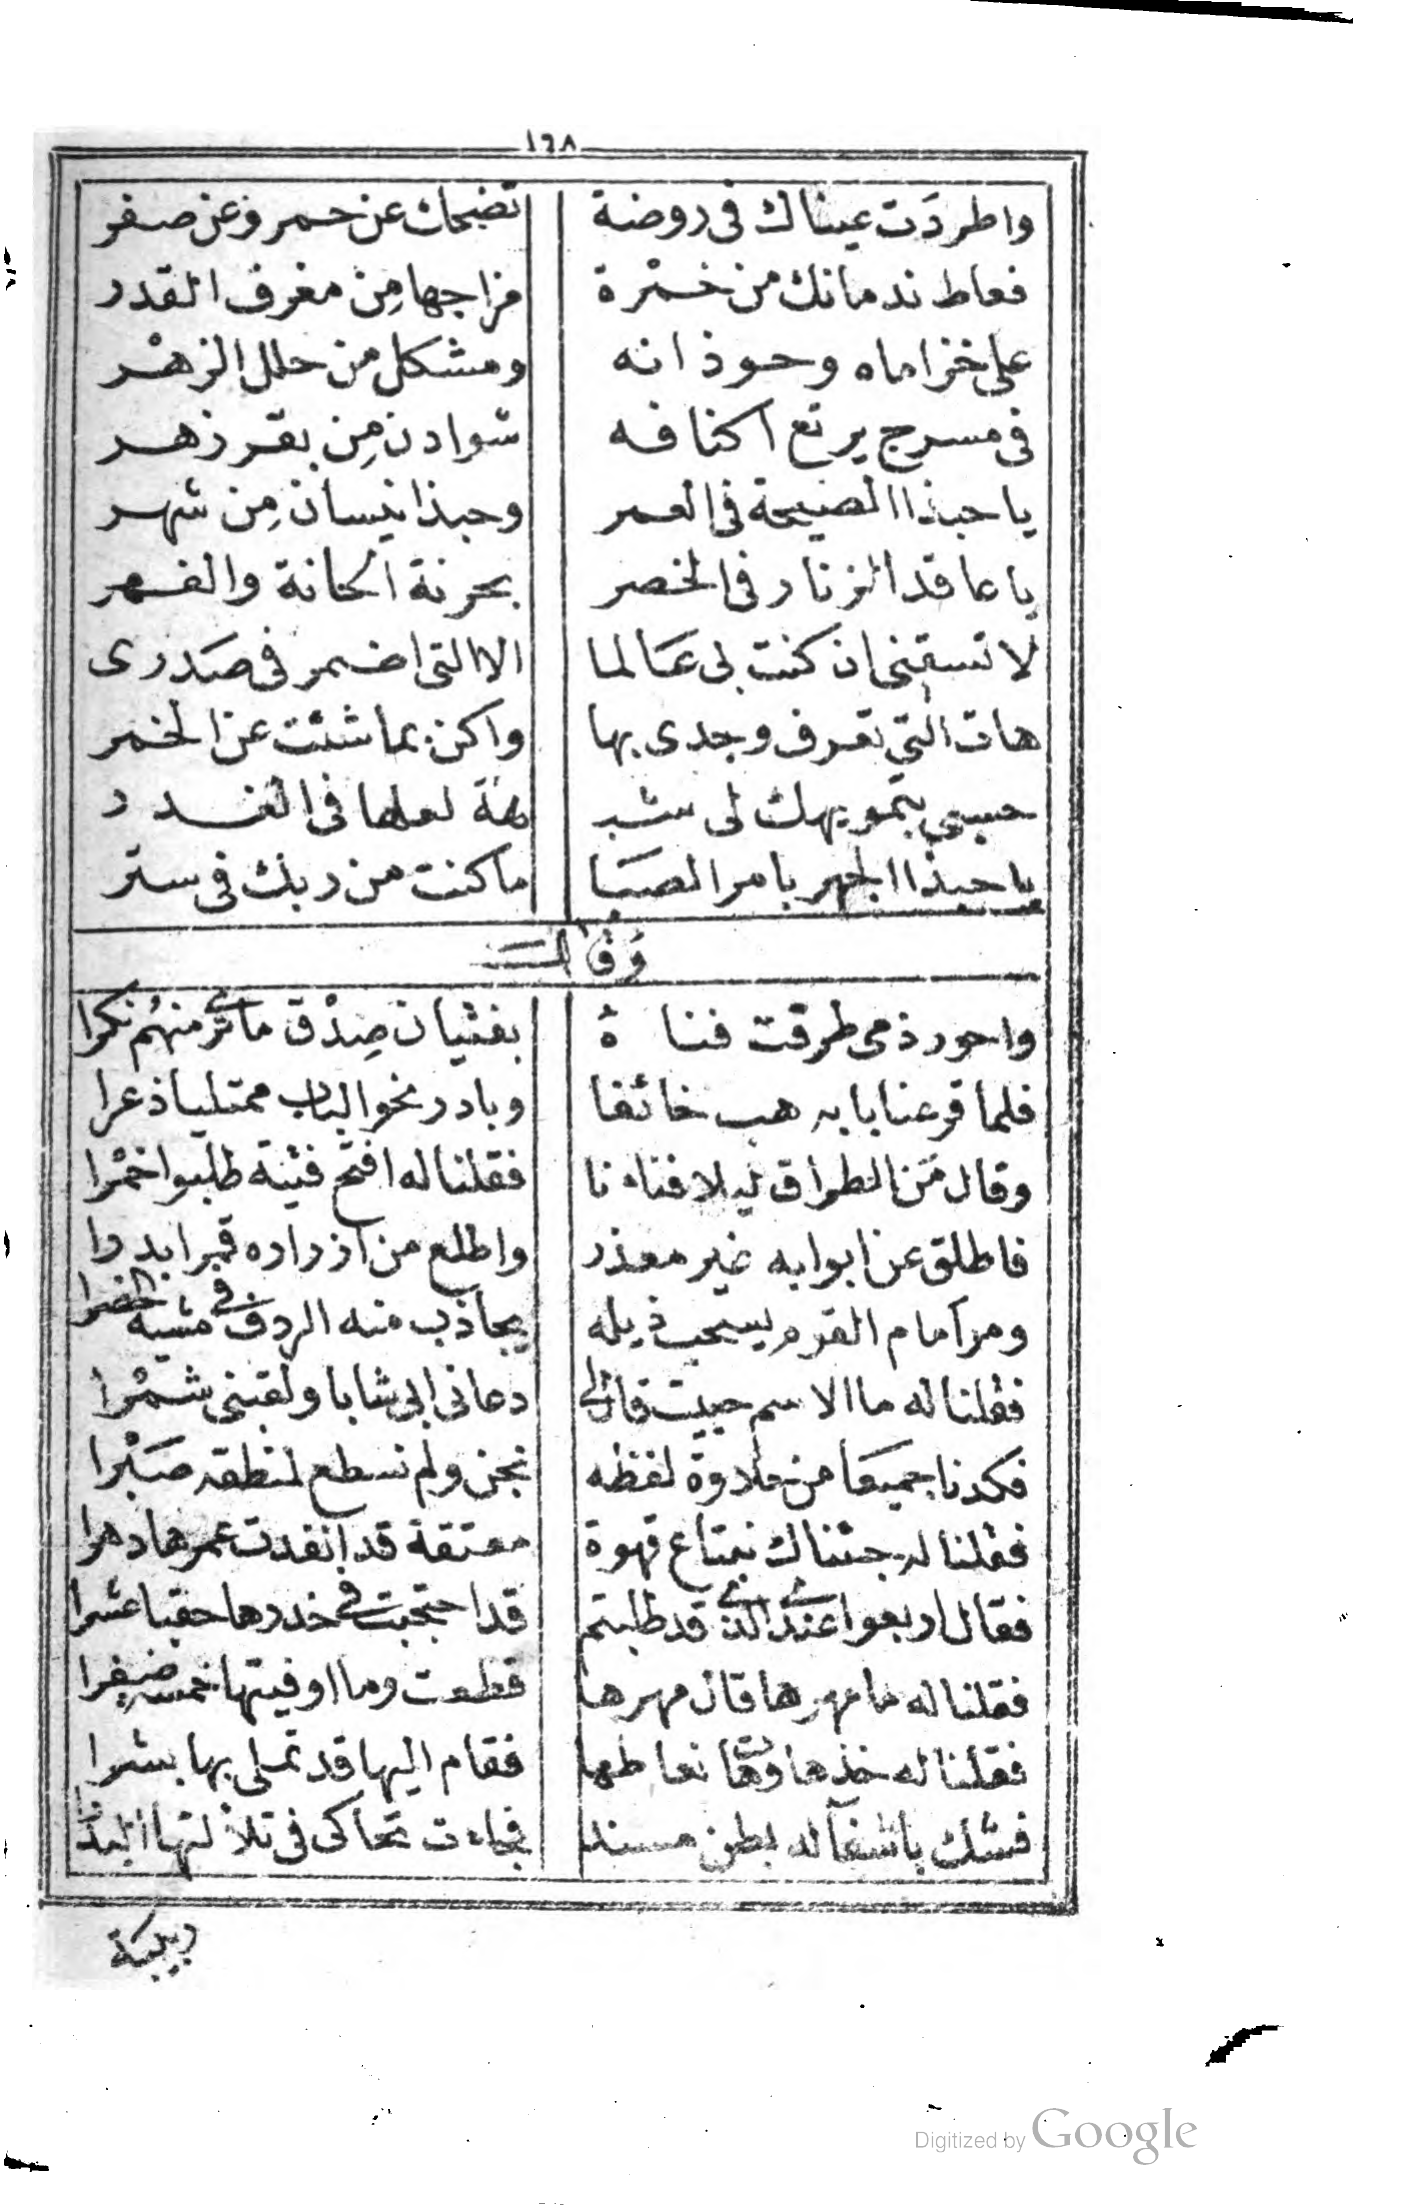 ١٦٨
واطردَت عيناك فى روضة تضحك عن حمر وعن صفر
فعاط ندمانك من خمْرة مزاجها مِن مغرف القدر
على خزاماه وحوذانه ومشكل من حلل الزهْر
فى مسرح يرتع اكنافه شوادن مِن بقر زهر
يا حبذا الصبيحة فى العمر وحبذا نيسان مِن شهر
يا عاقد الزنار فى الخصر بحرنة الحانة والفهر
لا تسقنى ان كنت لى عَالما الا التى اضمر فى صَدرى
هات التى تعرف وجدى بها واكن بما شئت عن الخمر
حسبى بتمويهك لى شبهة لعلها فى الغدر
يا حبذا الجهر بامر الصبَا ما كنت من ربك فى ستر
وَقال
واحور ذمى طرقت فناهُ بفتيان صِدْق ما ترى منهُم نكرا
فلما قرعنا بابه هب خائفا وبادر نحو الباب ممتليا ذعرا
وقال مَن الطراق ليلا فناءنا فقلنا له افتح فتية طلبوا خمْرا
فاطلق عن ابوابه غير معذر واطلع من ازراره قمرا بدرا
ومر امام القوم يسحب ذيله يجاذب منه الردف فى مشيه الخصرا
فقلنا له ما الاسم حييت قال لى دعانى ابى شابا ولقبنى شمْرا
فكدنا جميعَا من حلاوة لفظه نجن ولم نسطع لمنطقه صَبْرا
فقلنا له جئناك نبتاع قهوة معتقة قد انفدت عمرها دهرا
فقال اربعوا عندى الذى قد طلبتم قد احتجبت فى خدرها حقبا عشرا
فقلنا له ما مهرها قال مهرها قطعت وما اوفيتها خمسه صفرا
فقلنا له خذها وهَات نعاطها فقام اليها قد تملى بها بشرا
فشك باشفا له بطن مسند فجاءت تحاكى فى تلألئها البدرا
دبيبة
Digitized by Google